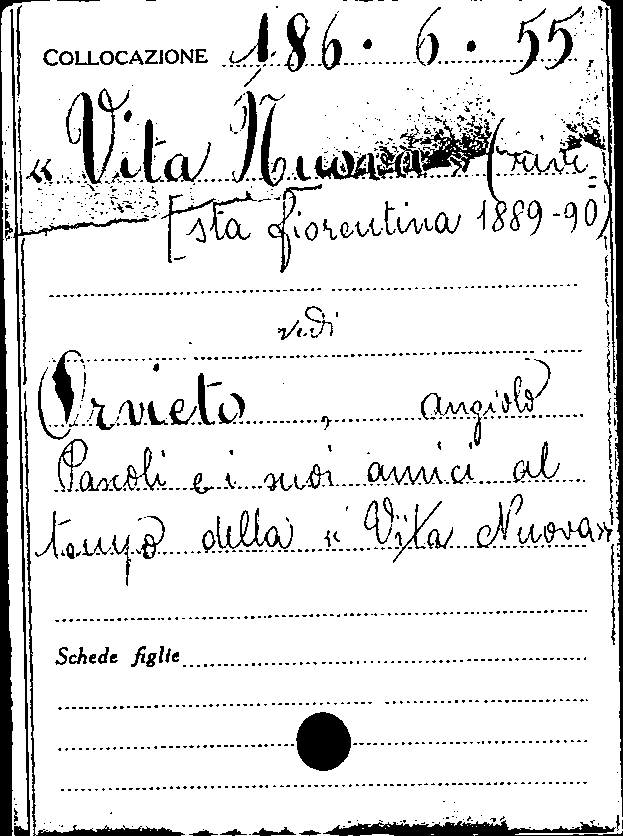 COLLOCAZIONE 186. 6. 55
« Vita Nuova » (rivi=
[sta fiorentina 1889-90)
vedi
Orvieto, Angiolo
Pascoli e i suoi amici al
tempo della « Vita Nuova»
Schede figlie